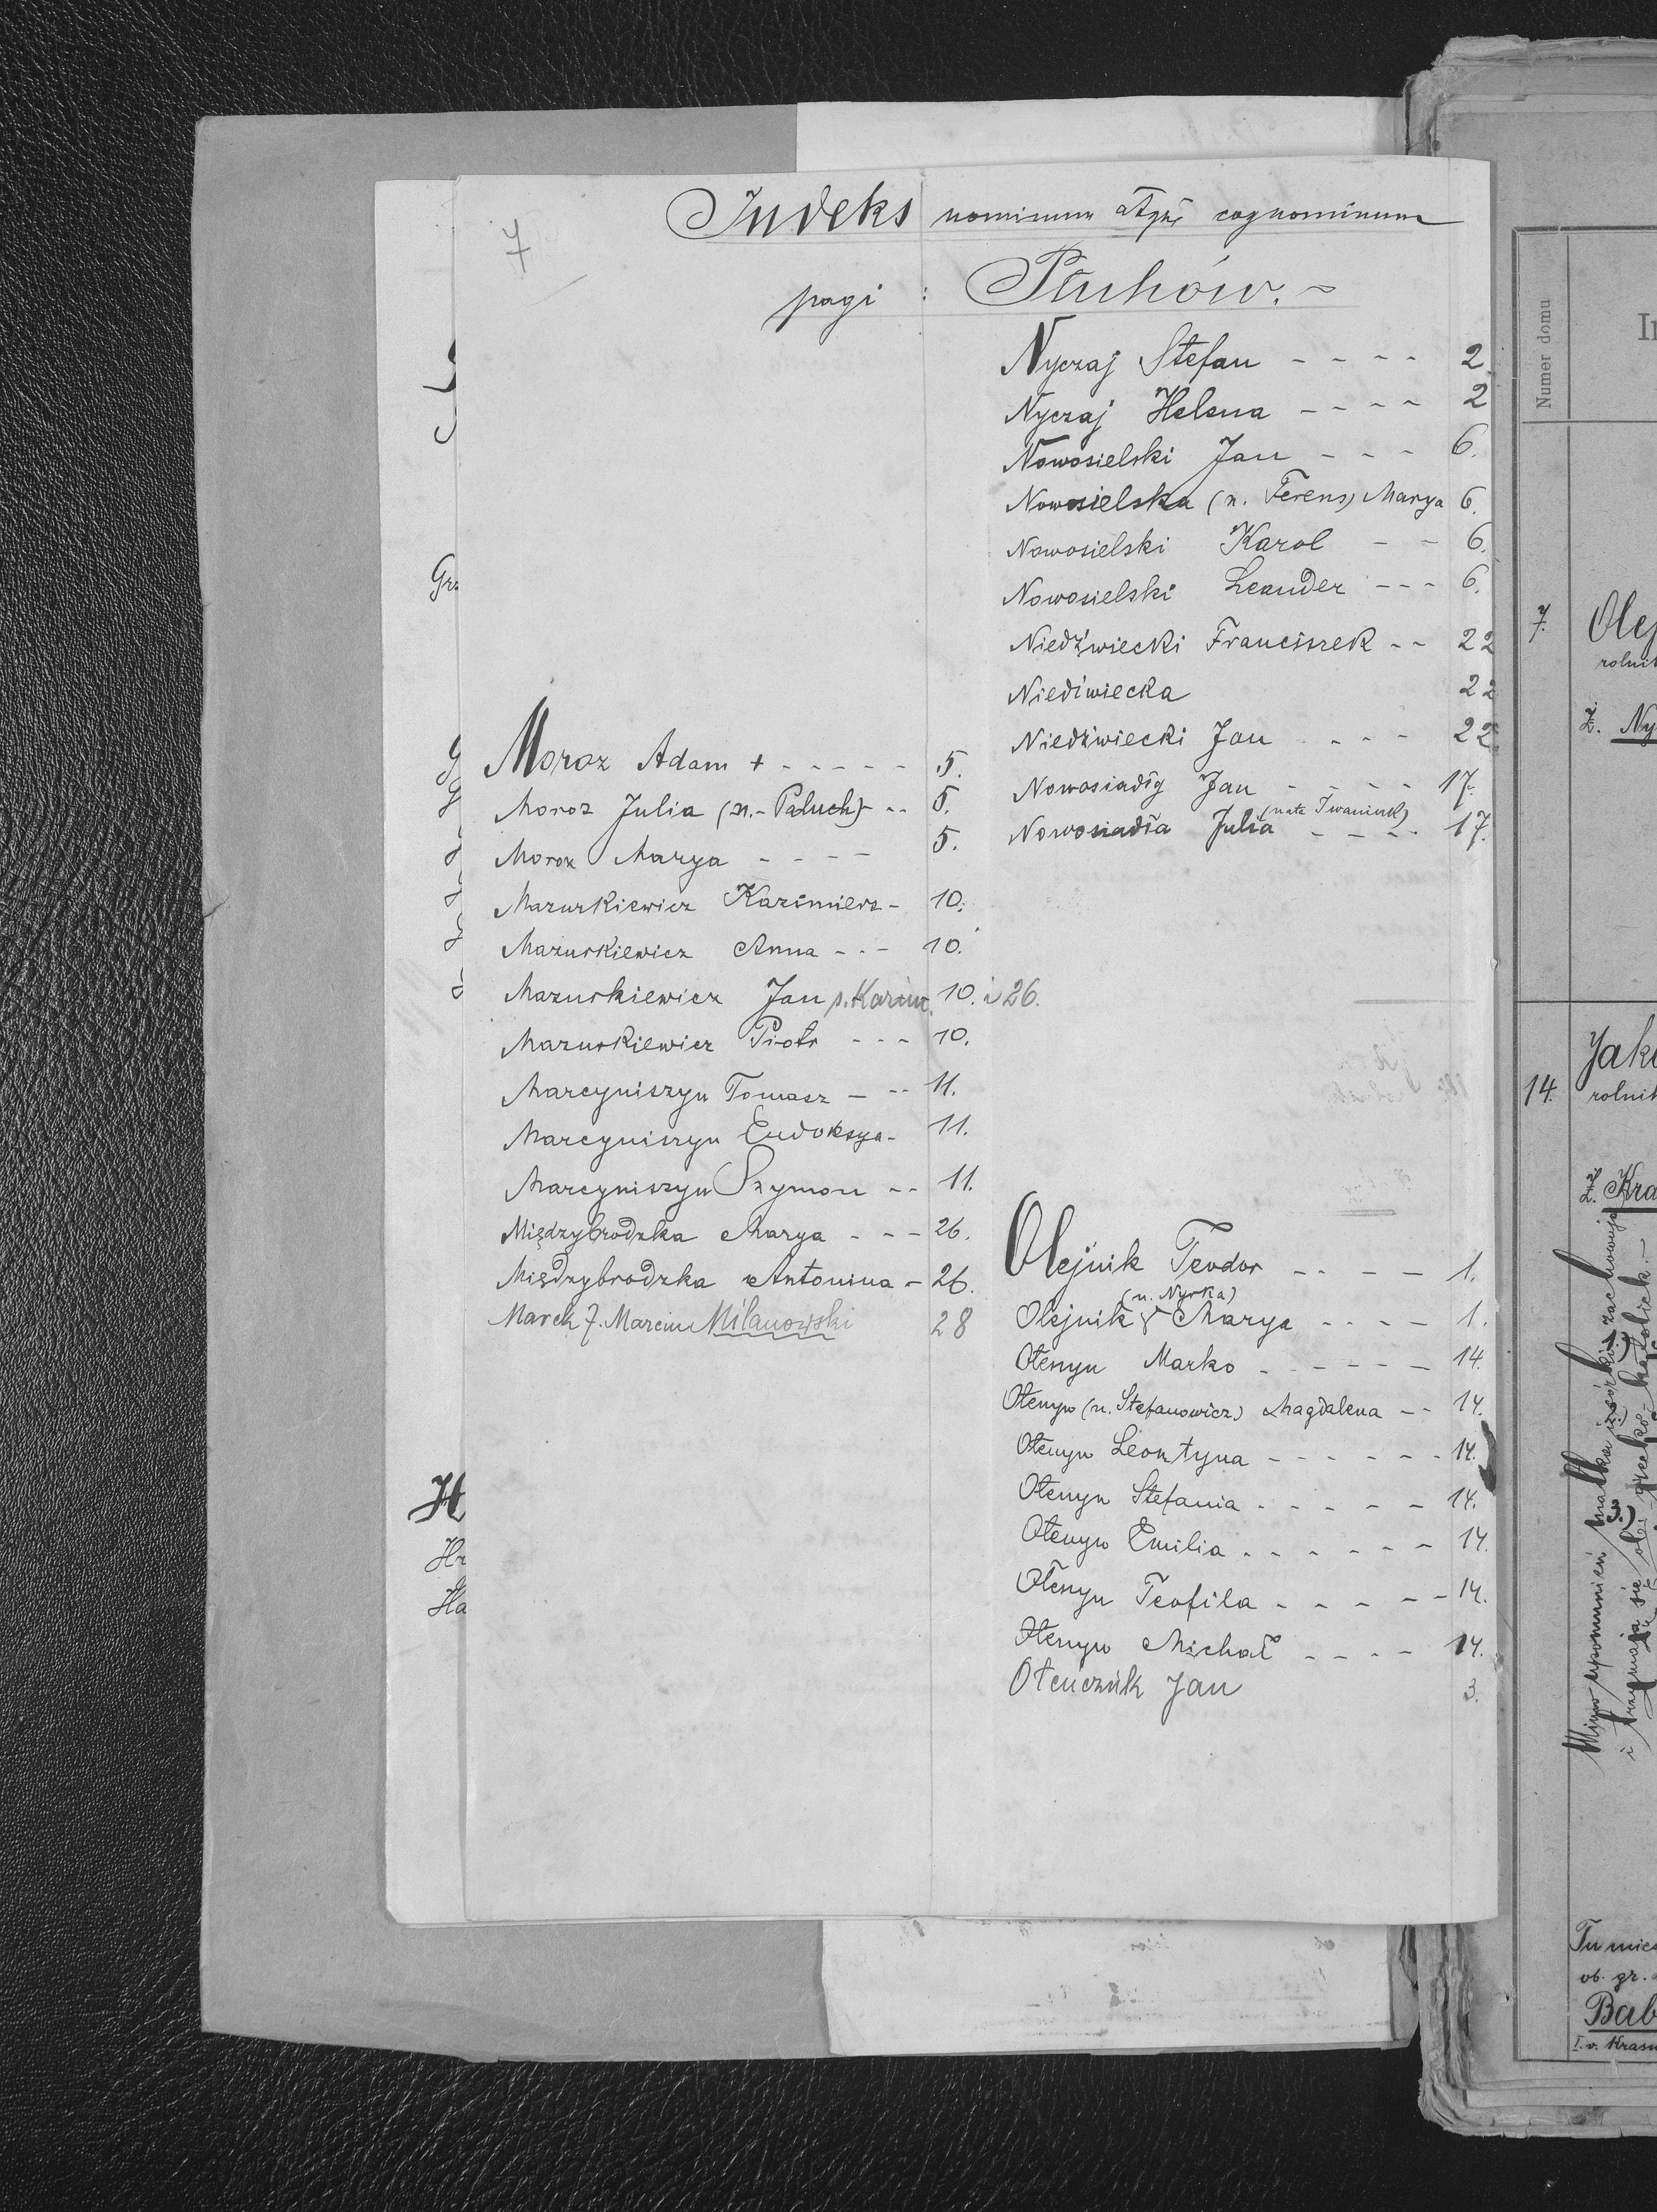 7
Indeks nominum atque cognominum
pagi : Płuhów. ~
Moroz Adam + - - - - - 5.
Moroz Julia (n. - Paluch) - - 5.
Moroz Marya - - - - 5.
Mazurkiewicz Kazimierz - 10.
Mazurkiewicz Anna - - - 10.
Mazurkiewicz Jan s. Kazim. 10. i 26.
Mazurkiewicz Piotr - - - 10.
Marcyniszyn Tomasz - - - 11.
Marcyniszyn Eudoksya - 11.
Marcyniszyn Szymon - - 11.
Międzybrodzka Marya - - - 26.
Międzybrodzka Antonina - 26.
Marek f. Marcin Milanowski 28
Nyczaj Stefan - - - - 2.
Nyczaj Helena - - - - 2
Nowosielski Jan - - - 6.
Nowosielska (n. Ferens) Marya 6.
Nowosielski Karol - - 6.
Nowosielski Leander - - - 6.
Niedźwiecki Franciszek - - 22
Niedźwiecka 22
Niedźwiecki Jan - - - 22.
Nowosiadły Jan - - - - 17.
(nata Iwaniuk)
Nowosiadła Julia - - - - 17.
Olejnik Teodor - - - - 1.
(n. Nyrka)
Olejnik Marya - - - - 1.
Ołenyn Marko - - - - - - 14.
Ołenyn (n. Stefanowicz) Magdalena - - 14.
Ołenyn Leontyna - - - - - - 14.
Ołenyn Stefania - - - - - 14.
Ołenyn Emilia - - - - - - 14.
Ołenyn Teofila - - - - - 14.
Ołenyn Michał - - - - 14.
Ołeńczuk Jan 3.
Grz
H
Hr
Ha
Numer domu
7. Olej
rolnik
ż. Ny
14. Jaku
rolnik
ż. Kra
ob. gr.
Bab